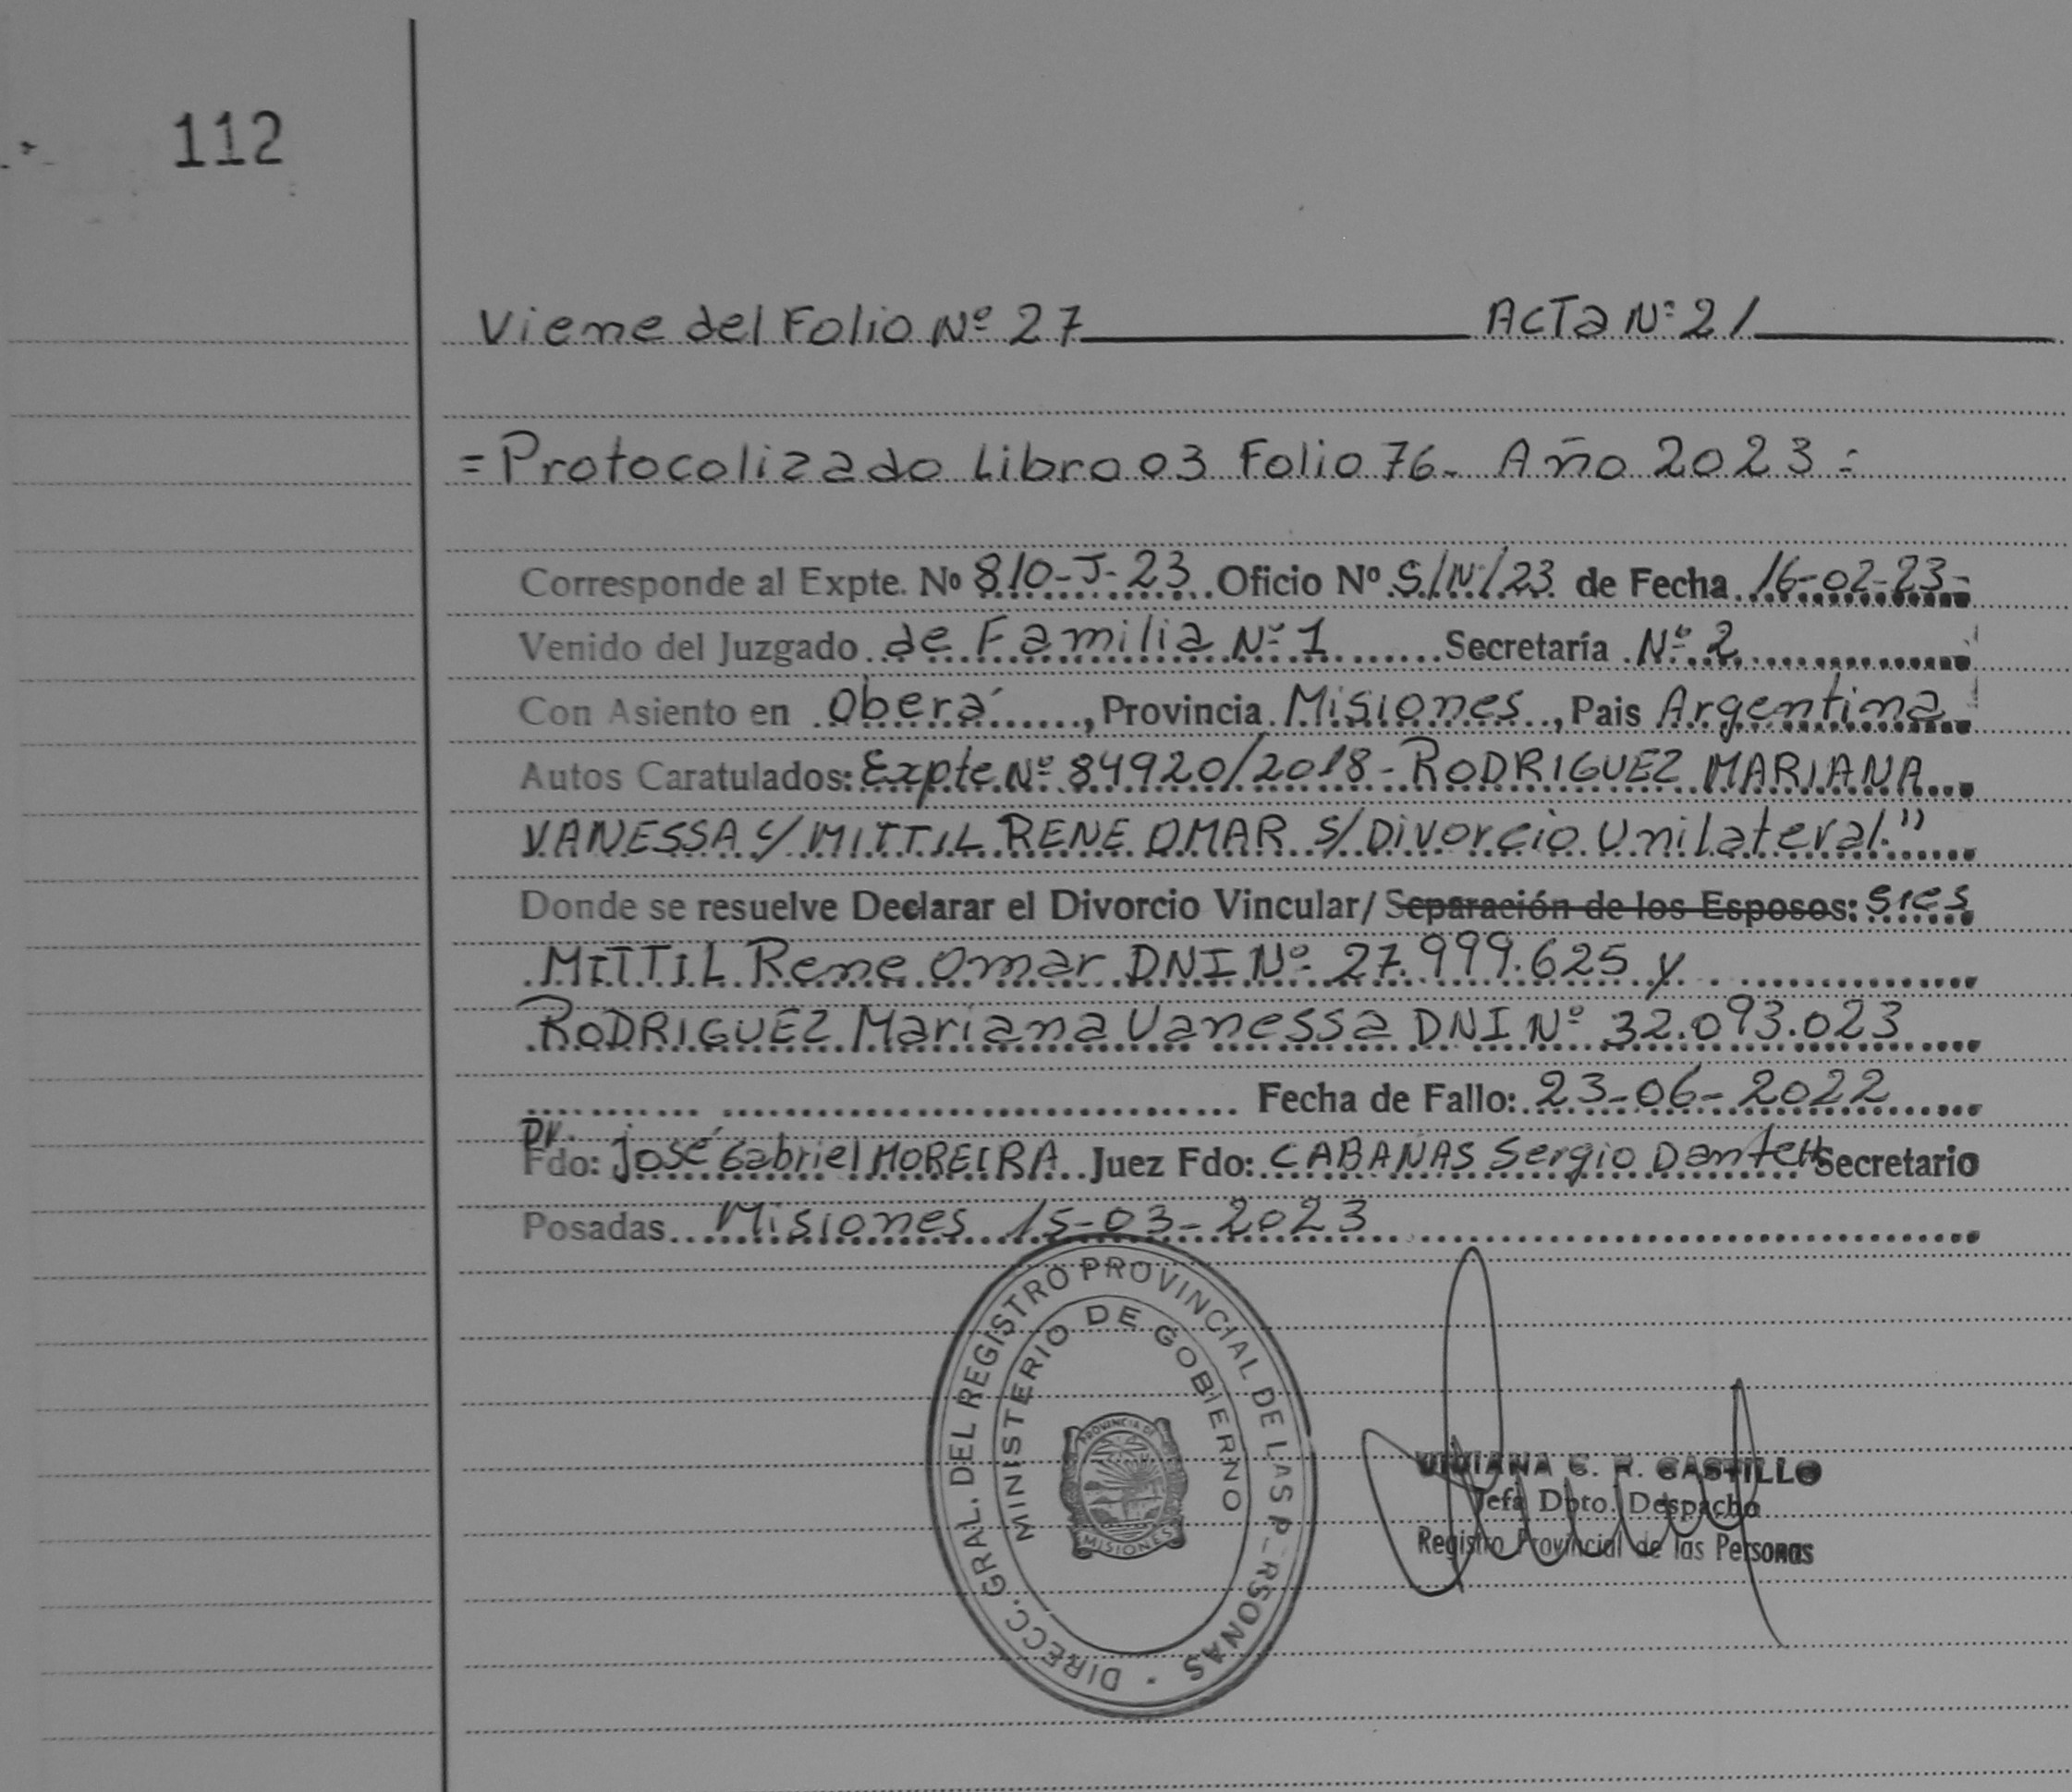 112
Viene del Folio Nº 27 Acta Nº 21
= Protocolizado Libro 03 Folio 76- Año 2023 =
Corresponde al Expte. Nº 810-J-23 Oficio Nº S/N/23 de Fecha 16-02-23-
Venido del Juzgado de Familia Nº 1 Secretaría Nº 2
Con Asiento en Oberá, Provincia Misiones, Pais Argentina
Autos Caratulados: Expte Nº 84920/2018 - RODRIGUEZ MARIANA
VANESSA C/ MITTIL RENE OMAR S/ Divorcio Unilateral"
Donde se resuelve Declarar el Divorcio Vincular/ Separación de los Esposos: sres
MITTIL Rene Omar DNI Nº 27.999.625 y
RODRIGUEZ Mariana Vanessa DNI Nº 32.093.023
Fecha de Fallo: 23-06-2022
Dr.
Fdo: José Gabriel MOREIRA Juez Fdo: CABAÑAS Sergio Dante H Secretario
Posadas Misiones 15-03-2023
DIRECC. GRAL. DEL REGISTRO PROVINCIAL DE LAS P_RSONAS
MINISTERIO DE GOBIERNO
PROVINCIA DE
MISIONES
VIVIANA G. R. CASTILLO
Jefa Dpto. Despacho
Registro Provincial de las Personas